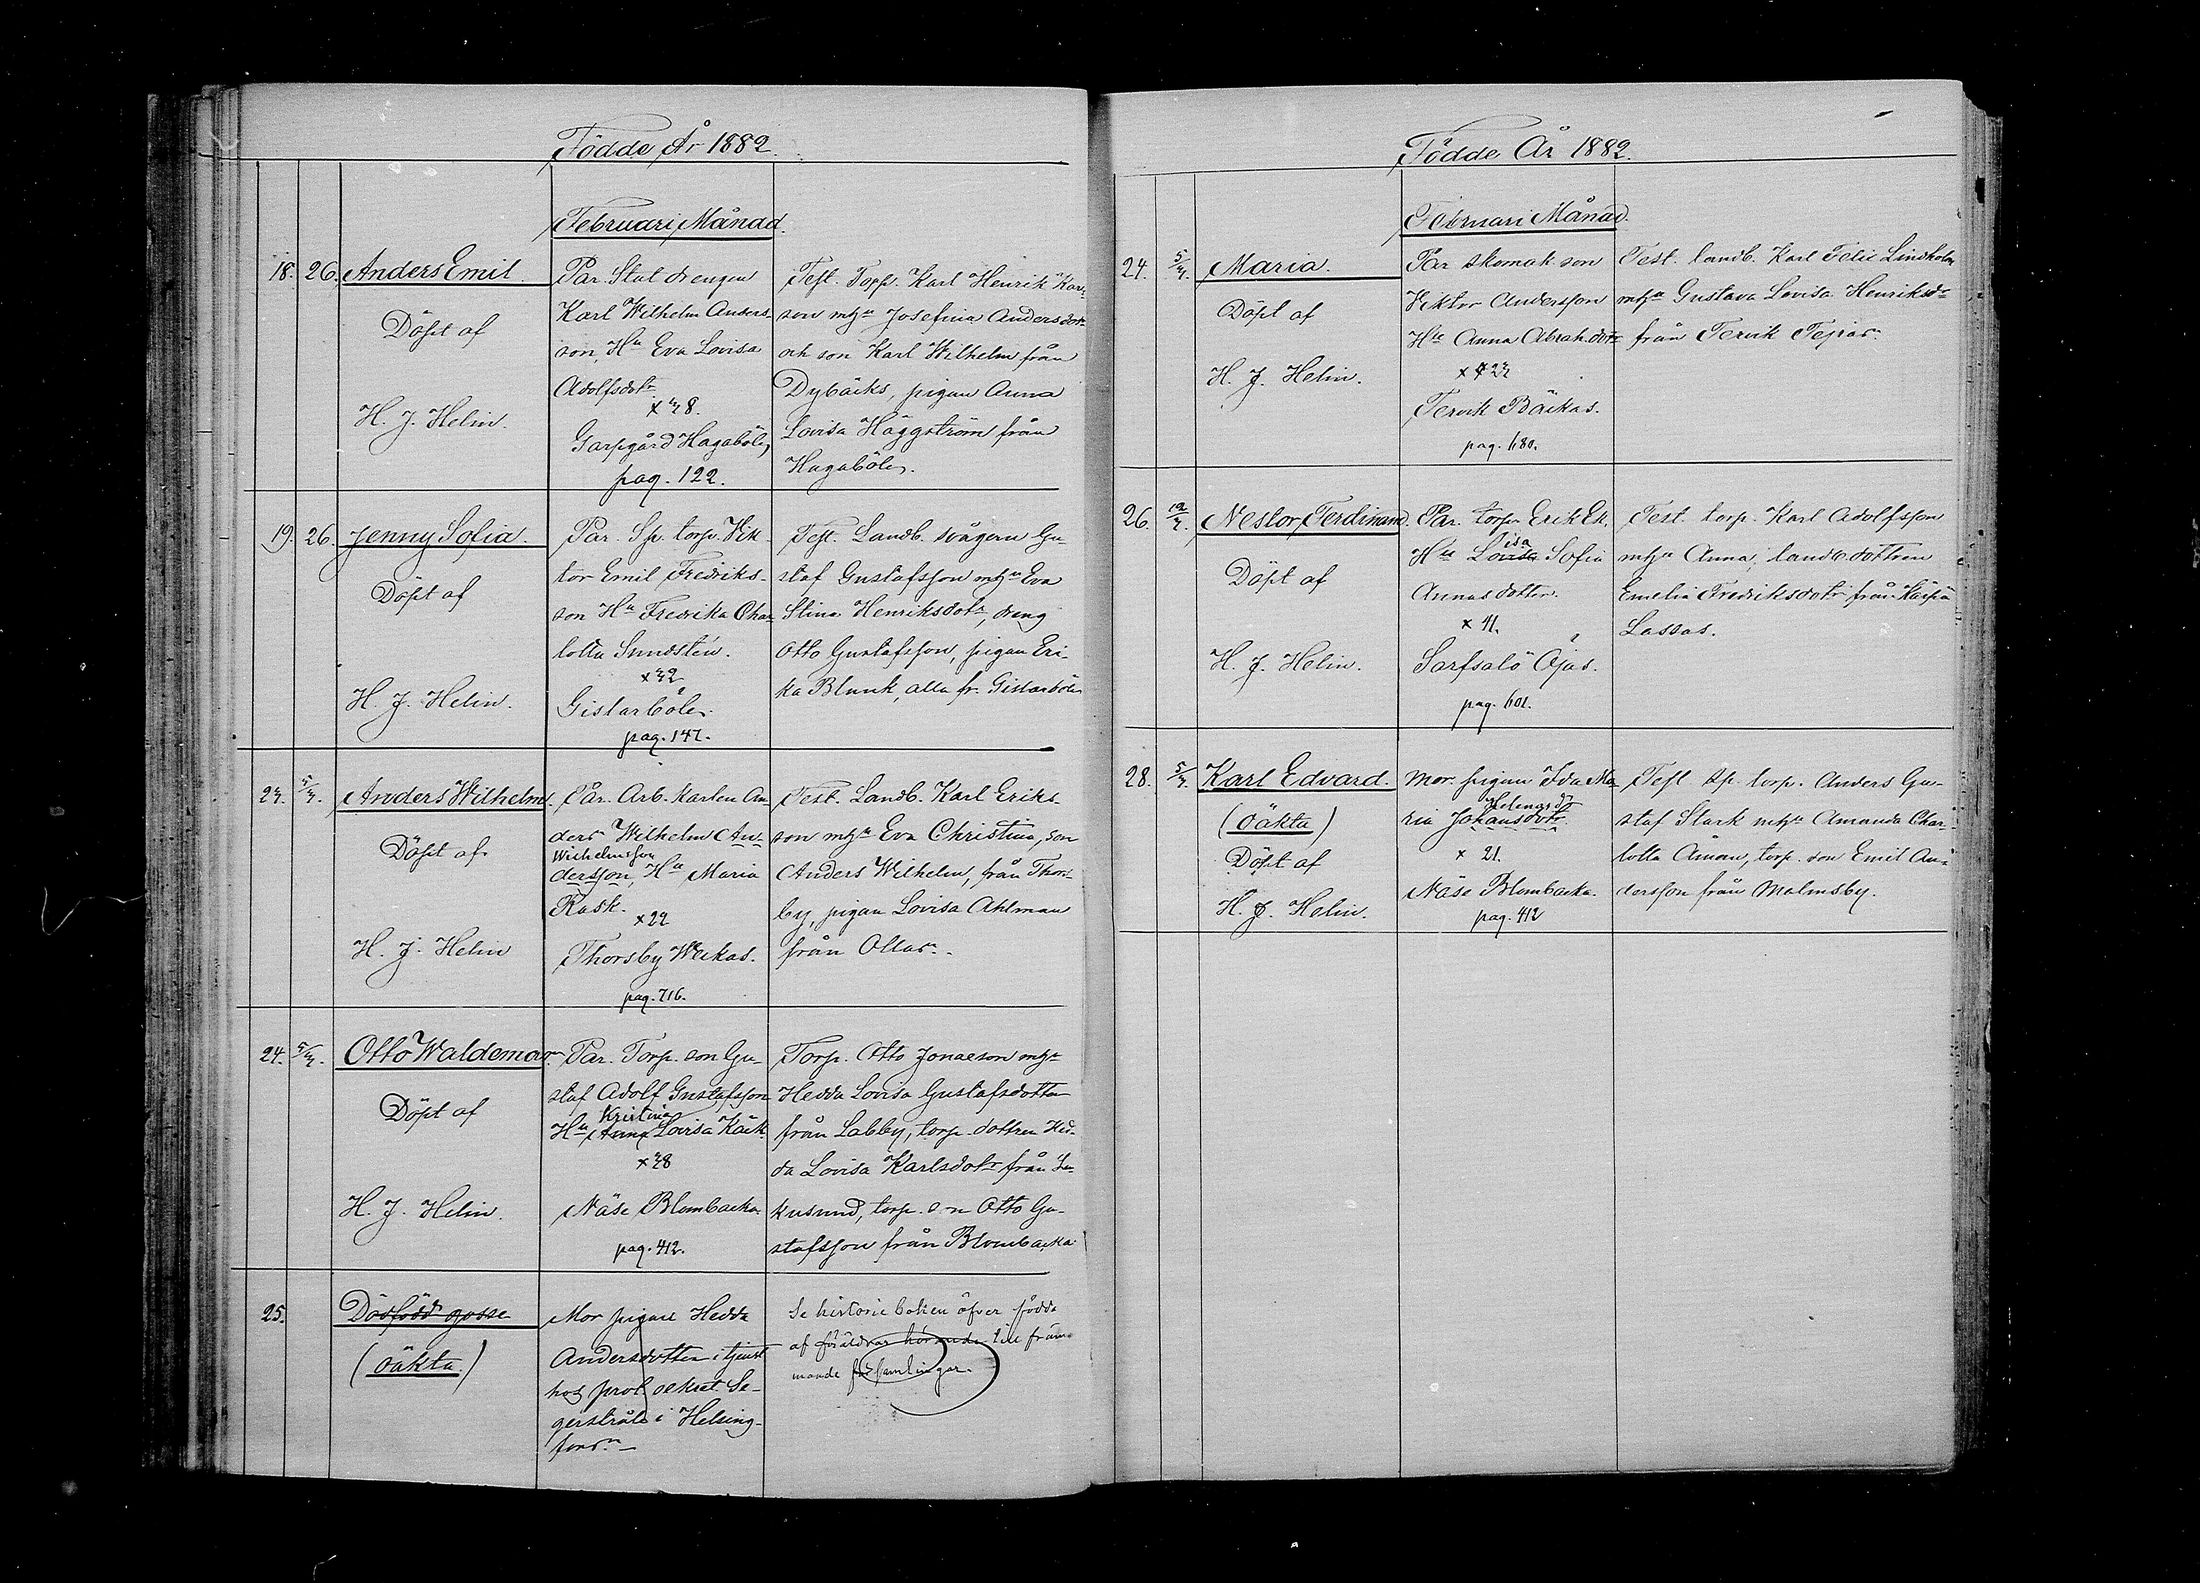 Födde År 1882.
Februari Månad.
18. 26. Anders Emil.
Döpt af
H. J. Helin.
Par. Stat drengen
Karl Wilhelm Anders-
son, Hu Eva Lovisa
Adolfsdotr
x 38.
Garpgård Hagaböle,
pag. 122.
Test. Torp. Karl Henrik Karl-
son m hu Josefina Andersdotr
och son Karl Wilhelm från
Dybäcks, pigan Anna
Lovisa Häggström från
Hagaböle.
19. 26. Jenny Sofia.
Döpt af
H. J. Helin.
Par. Sp. torp. Vik-
tor Emil Fredriks-
son Hu Fredrika Char-
lotta Sundstén.
x 32
Gislarböle.
pag. 147.
Test. Landb. svågern Gu-
staf Gustafsson m hu Eva
Stina Henriksdotr, dreng
Otto Gustafsson, pigan Eri-
ka Blunk, alla fr. Gislarböle
23. 5/3. Anders Wilhelm.
Döpt af
H. J. Helin
Par. Arb. karlen An-
ders Wilhelm An-
Wilhelmsson
dersson, Hu Maria
Rask.
x 22
Thorsby Weckas.
pag. 716.
Test. Landb. Karl Eriks-
son m hu Eva Christina, son
Anders Wilhelm, från Thors-
by, pigan Lovisa Ahlman
från Ollas.
24. 5/3. Otto Waldemar.
Döpt af
H. J. Helin.
Par. Torp. son Gu-
staf Adolf Gustafsson
Kristina
Hu Anna Lovisa Käck.
x 38
Näse Blombacka
pag. 412.
Torp. Otto Jonasson m hu
Hedda Lovisa Gustafsdotter
från Labby, torp. dottren Hed-
da Lovisa Karlsdotr från
kusund, torp. son Otto Gu-
stafsson från Blombacka
25. Dödfödd gosse
(oäkta.)
Mor pigan Hedda
Andersdotter i tjenst
hos prot. sekret. Se-
gerstråle i Helsing-
fors.
Se historie boken öfver födda
af föräldrar hörande till främ-
mande församlingar.
Födde År 1882.
Februari Månad.
24. 5/3. Maria.
Döpt af
H. J. Helin.
Par skomak son
Viktor Andersson
Hu Anna Abrah.dotr
x 23
Tervik Bäckas.
pag. 680.
Test. landb. Karl Felix Lindholm
m hu Gustava Lovisa Henriksdr
från Tervik Tepias.
26. 12/3. Nestor Ferdinand.
Döpt af
H. J. Helin.
Par. torp. Erik Ek,
isa
Hu Lovisa Sofia
Annasdotter.
x 41.
Sarfsalö Öjas.
pag. 601.
Test. torp. Karl Adolfsson
m hu Anna, landb. dottren
Emelie Fredriksdotr från Kärpä
Lassas.
28. 5/3. Karl Edvard.
(oäkta)
Döpt af
H. J. Helin.
Mor. pigan Ida Ma-
Helenasdr
ria Johansdotr
x 21.
Näse Blombacka.
pag. 412
Test sp. torp. Anders Gu-
staf Stark m hu Amanda Char-
lotta Åman, torp. son Emil An-
dersson från Malmsby.